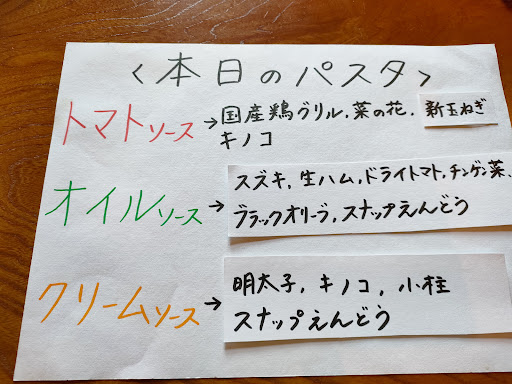 <本日のパスタ>
トマトソース→国産鶏グリル,菜の花,新玉ねぎ
キノコ
オイルソース→スズキ,生ハム,ドライトマト,チンゲン菜、
ブラックオリーブ,スナップえんどう
クリームソース→明太子,キノコ,小柱
スナップえんどう